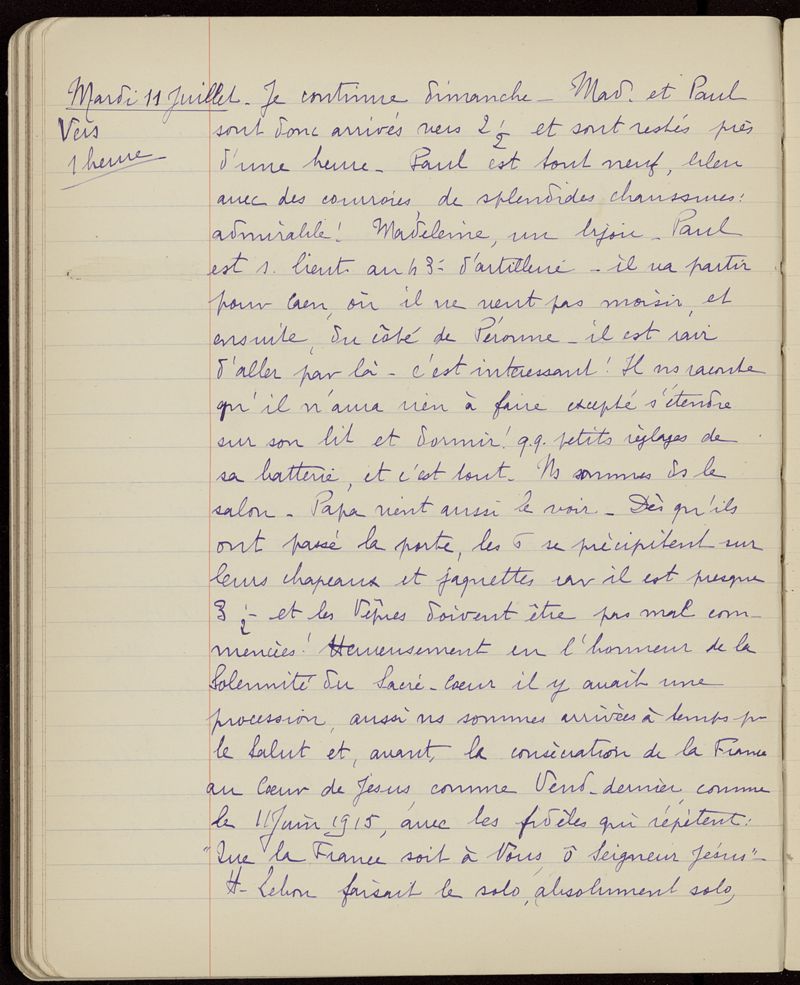 Mardi 11 Juillet. Je continue dimanche - Mad. et Paul
Vers
1 heure
sont donc arrivés vers 2 1/2 et sont restés près
d'une heure - Paul est tout neuf, bleu
avec des courroies, de splendides chaussures:
admirable! Madeleine, un bijou - Paul
est s. lieut. au 43e d'artillerie - il va partir
pour Caen, où il ne veut pas moisir, et
ensuite, du côté de Péronne - il est ravi
d'aller par là - c'est intéressant! Il ns raconte
qu'il n'aura rien à faire excepté s'étendre
sur son lit et dormir! q.q. petits règlages de
sa batterie, et c'est tout. Ns sommes ds le
salon - Papa vient aussi le voir - Dès qu'ils
ont passé la porte, les 6 se précipitent sur
leurs chapeaux et jaquettes car il est presque
3 1/2 - et les Vêpres doivent être pas mal com-
mencées! Heureusement en l'honneur de la
Solennité du Sacré-Coeur il y avait une
procession, aussi ns sommes arrivées à temps pr
le Salut et, avant, la consécration de la France
au Coeur de Jésus comme Vend. dernier, comme
le 11 Juin 1915, avec les fidèles qui répètent:
"Que la France soit à Vous, ô Seigneur Jésus"-
H- Lebon faisait le solo, absolument solo,